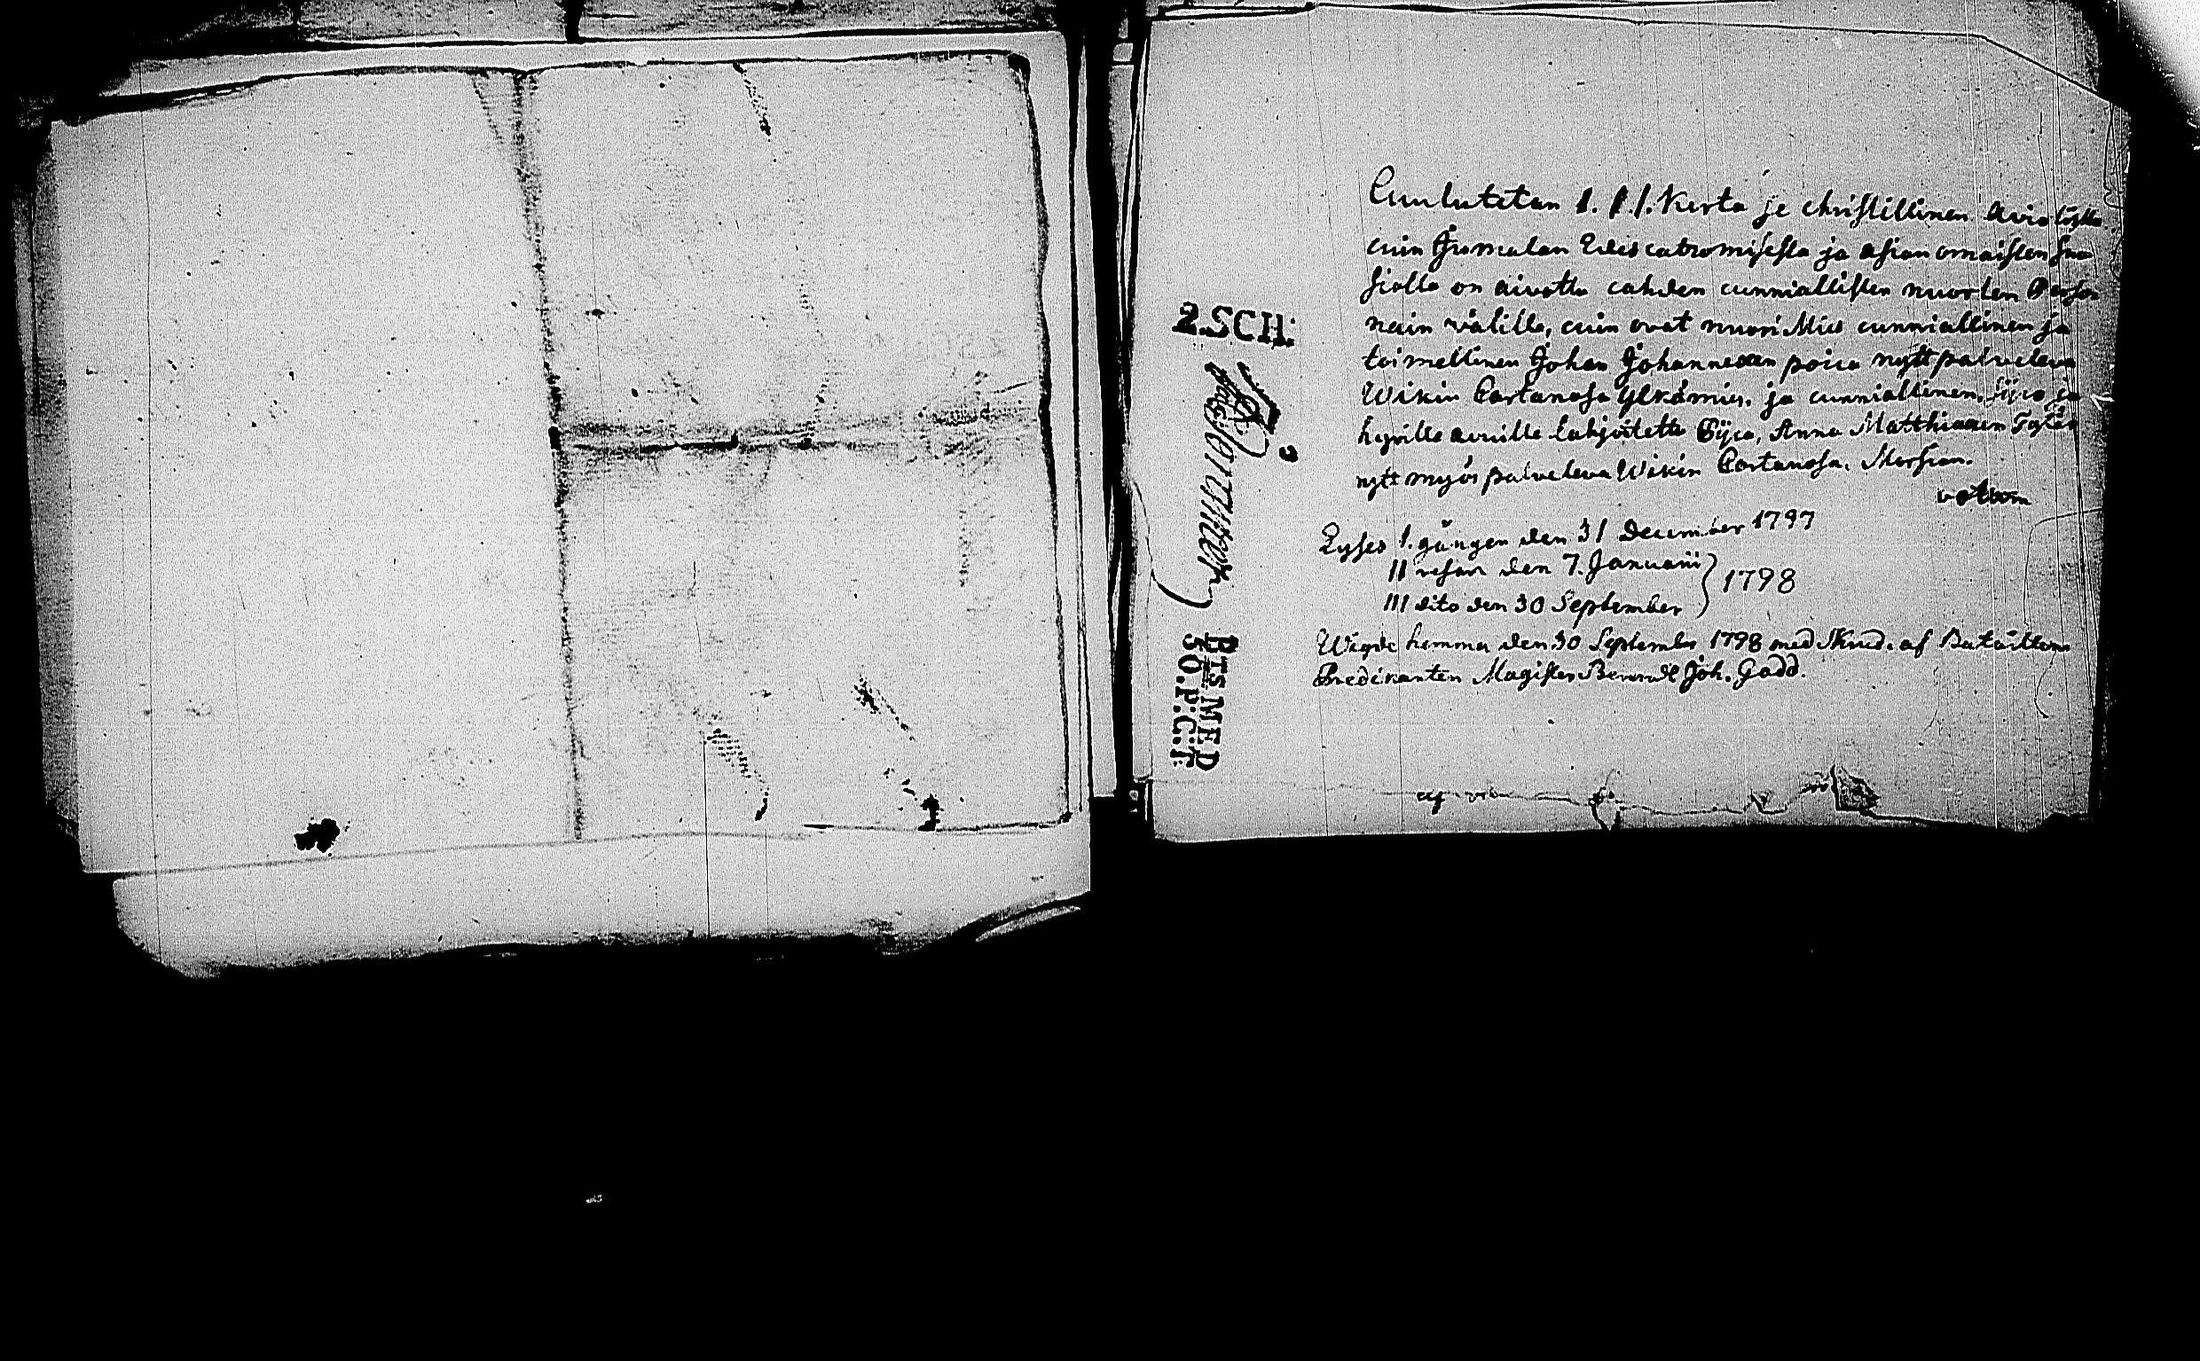 Cuulutetan 1. 1. 1. Kerta se christillinen Avio käsky
cuin Jumalan Edescatzomisesta ja asian omaisten suo
siolla on aivottu cahden cunniallisten nuorten Perso
nain välille, cuin ovat nuori Mies cunniallinen ja
toimellinen Johan Johannexen poica nytt palveleva
Wikin Cartanosa Ylkämies, ja cunniallinen, sijvo ja
hyville avuille lahjoitettu Pijca, Anna Matthiaxen Tytär
nytt myös palveleva Wikin Cartanosa. Morsian.
votum
Lyses 1. gången den 31 December 1797
II resan den 7. Januarii
III dito den 30 September } 1798
Wigde hemma den 30 September 1798 med Skud. af Bataillons
Predikanten Magister Berndt Joh. Gadd.
2. SCH:
RTS MED
30. P: C: T: